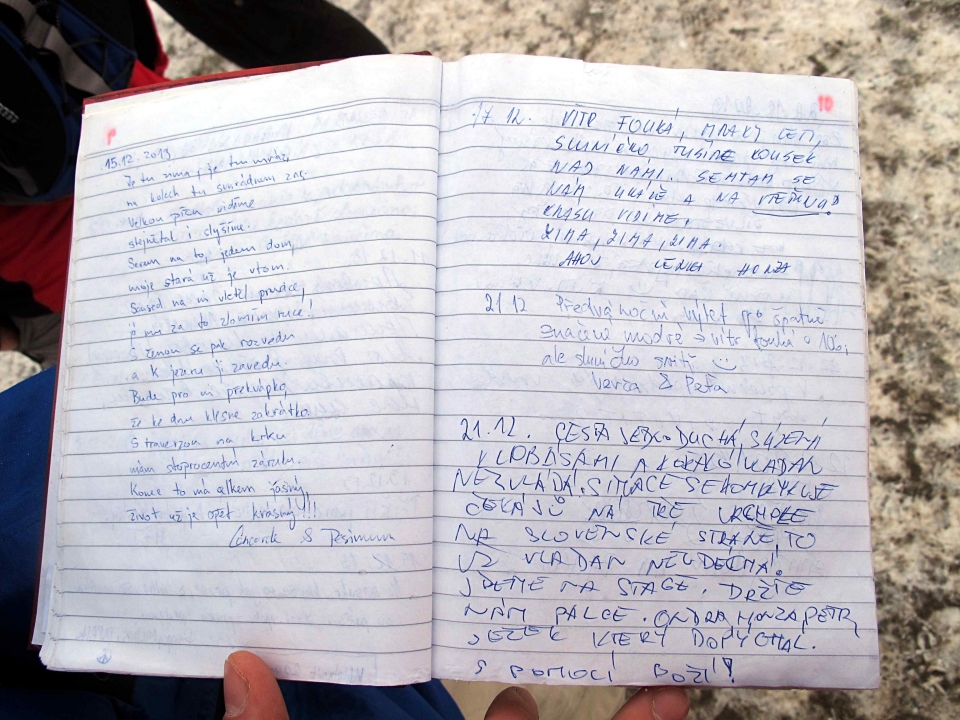 15.12. 2013
Že tu zima je, je tu mráz,
na kolech tu zas.
Velkou vidíme
stejně tak i slyšíme.
Seru na to, jedem dom,
moje stará už je v tom.
Soused na ni vletěl prudce,
já mu za to zlomím ruce!!
S ženou se pak rozvedu
a k jezeru ji zavedu.
Bude pro ni překvápko,
že ke dnu klesne zakrátko.
S traverzou na krku
mám stoprocentní záruku.
Konec to má celkem jasný,
život už je opět krásný!!!
&
17 12. VÍTR FOUKÁ, MRAKY LETÍ,
SLUNÍČKO TUŠÍME KOUSEK
NAD NÁMI. SEMTAM SE
NÁM UKÁŽE A NA VTEŘINU
KRÁSU VIDÍME.
ZIMA, ZIMA, ZIMA.
AHOJ LENKA HONZA
21 12 Předvánoční výlet po špatně
značené modré → vítr fouká
ale sluníčko svítí
Verča & Péťa
21.12. CESTA JEDNODUCHÁ,
KLOBÁSAMI A VLADAN
NEZVLÁDÁ. SITUACE SE KOMPLIKUJE
NA VRCHOLE
NA SLOVENSKÉ STRANĚ, TO
UŽ VLADAN NEVDECHÁ!
JDEME NA STAGE. DRŽTE
NÁM PALCE. ONDRA HONZA PETR
JEŽEK KTERÝ DOPÝCHAL.
S POMOCÍ BOŽÍ!